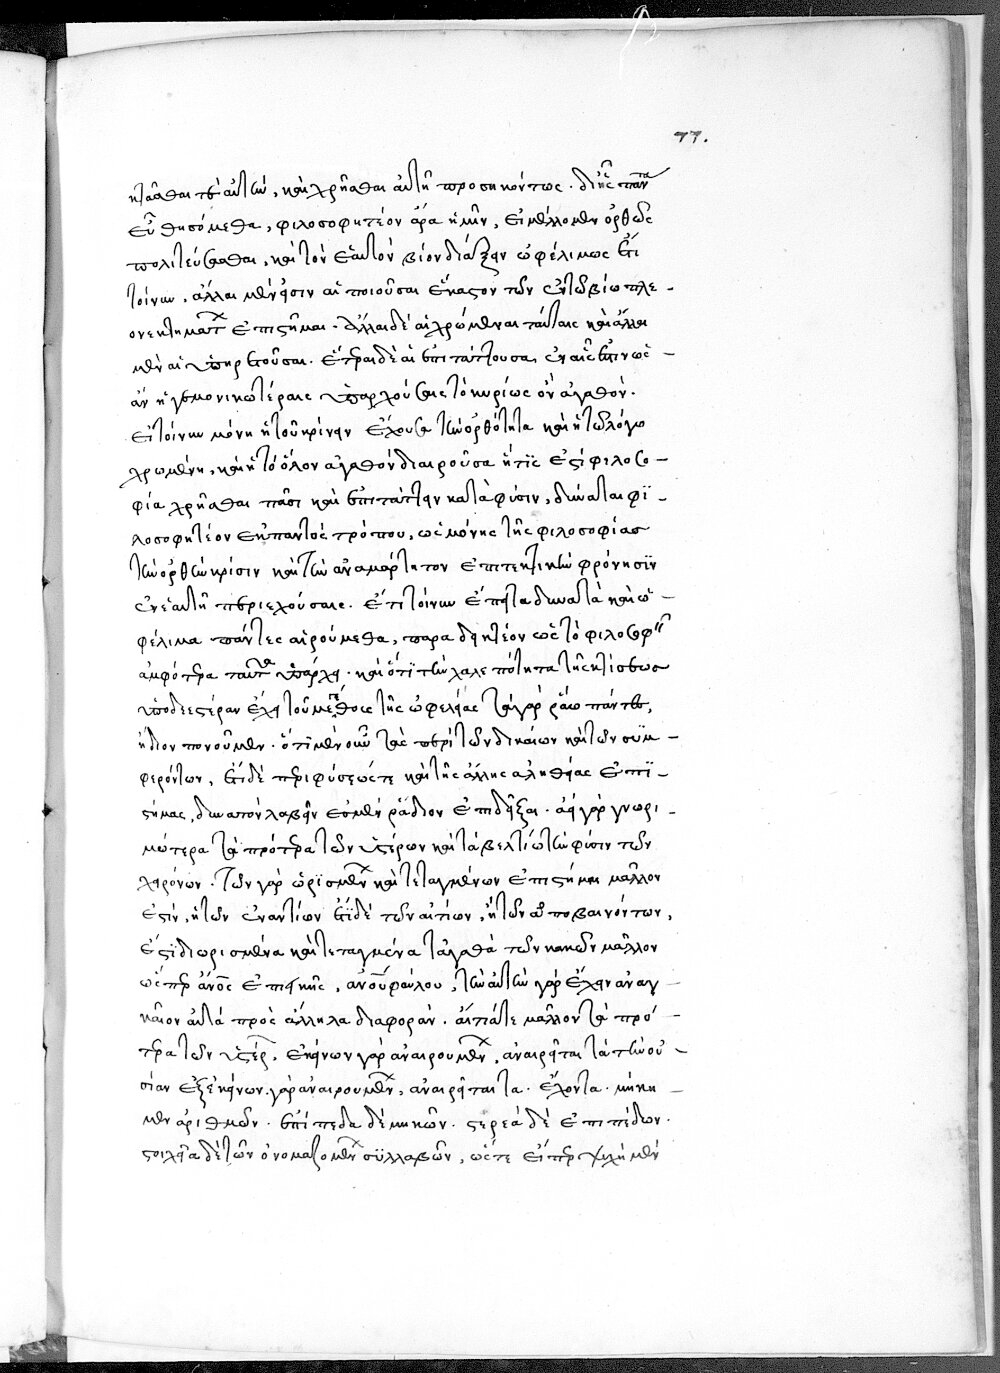 77.
κτᾶσθαι τὲ αὐτὴν, καὶ χρῆσθαι αὐτῇ προσηκόντως. δι' ἧς πάντα
εὖ θησόμεθα, φιλοσοφητέον ἄρα ἡμῖν, εἰ μέλλομεν ὀρθῶς
πολιτεύσασθαι, καὶ τὸν ἑαυτῶν βίον διάξειν ὠφελίμως ἔτι
τοίνυν. ἄλλαι μέν εἰσιν αἱ ποιοῦσαι ἕκαστον τῶν ἐν τῷ βίῳ πλε-
ονεκτημάτων ἐπιστῆμαι. ἄλλαι δὲ αἱ χρώμεναι ταύταις καὶ ἄλλαι
μὲν αἱ ὑπηρετοῦσαι. ἕτεραι δὲ αἱ ἐπιτάττουσαι, ἐν αἷς ἐστιν ὡς-
ἂν ἡγεμονικωτέραις ὑπαρχούσαις τὸ κυρίως ὂν ἀγαθόν.
εἰ τοίνυν μόνη ἡ τοῦ κρίνειν ἔχουσα τὴν ὀρθότητα καὶ ἡ τῷ λόγῳ
χρωμένη, καὶ ἡ τὸ ὅλον ἀγαθὸν διαιροῦσα ἥτις ἐστὶ φιλοσο-
φία χρῆσθαι πᾶσι καὶ ἐπιτάττειν κατὰ φύσιν, δύναται φι-
λοσοφητέον ἐκ παντὸς τρόπου, ὡς μόνης τῆς φιλοσοφίας
τὴν ὀρθὴν κρίσιν καὶ τὴν ἀναμάρτητον ἐπιτακτικὴν φρόνησιν
ἐν ἑαυτῇ περιεχούσης. ἔτι τοίνυν ἐπεὶ τὰ δυνατὰ καὶ ὠ-
φέλιμα πάντες αἱρούμεθα, παραδεικτέον ὡς τὸ φιλοσοφεῖν
ἀμφότερα ταῦτα ὑπάρχει. καὶ ὅτι τὴν χαλεπότητα τῆς κτίσεως
ὑποδεεστέραν ἔχει τοῦ μεγέθους τῆς ὠφελείας τὰ γὰρ ῥᾴω πάντες,
ἥδιον πονοῦμεν. ὅτι μὲν οὖν τὰς περὶ τῶν δικαίων καὶ τῶν συμ-
φερόντων, ἔτι δὲ περὶ φύσεώς τε καὶ τῆς ἄλλης ἀληθείας ἐπι-
στήμας, δυνατόν λαβεῖν ἐσμὲν ῥᾴδιον ἐπιδεῖξαι. ἀεὶ γὰρ γνωρι-
μώτερα τὰ πρότερα τῶν ὑστέρων καὶ τὰ βελτίω τὴν φύσιν τῶν
χειρόνων. τῶν γὰρ ὡρισμένων καὶ τεταγμένων ἐπιστήμη μᾶλλον
ἐστίν, ἢ τῶν ἐναντίων ἔτι δὲ τῶν αἰτίων, ἢ τῶν ἀποβαινόντων,
ἔστι διωρισμένα καὶ τεταγμένα τἀγαθὰ τῶν κακῶν μᾶλλον
ὥσπερ ἄνος ἐπιεικὴς, ἀνοῦ φαύλου, τὴν αὐτὴν γὰρ ἔχειν ἀναγ-
καῖον αὐτὰ πρὸς ἄλληλα διαφοράν. αἴτιά τε μᾶλλον τὰ πρό-
τερα τῶν ὑστέρων, ἐκείνων γὰρ ἀναιρουμένων, ἀναιρεῖται τὰ τὴν οὐ-
σίαν ἐξ ἐκείνων. γὰρ ἀναιρουμένων, ἀναιρεῖται τα. ἔχοντα. μήκη-
μὲν ἀριθμῶν. ἐπίπεδα δὲ μηκῶν. στερεὰ δὲ ἐπιπέδων.
στοιχεῖα δὲ τῶν ὀνομαζομένων συλλαβῶν, ὥστε εἴπερ ψυχὴ μὲν